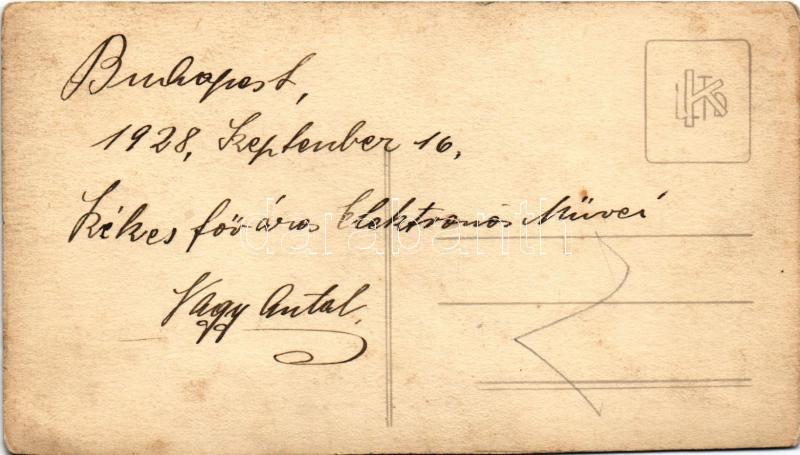 Budapest,
1928. Szeptember 16.
Székes fővárosi Elektromos Művei
Nagy Antal.
darabanth